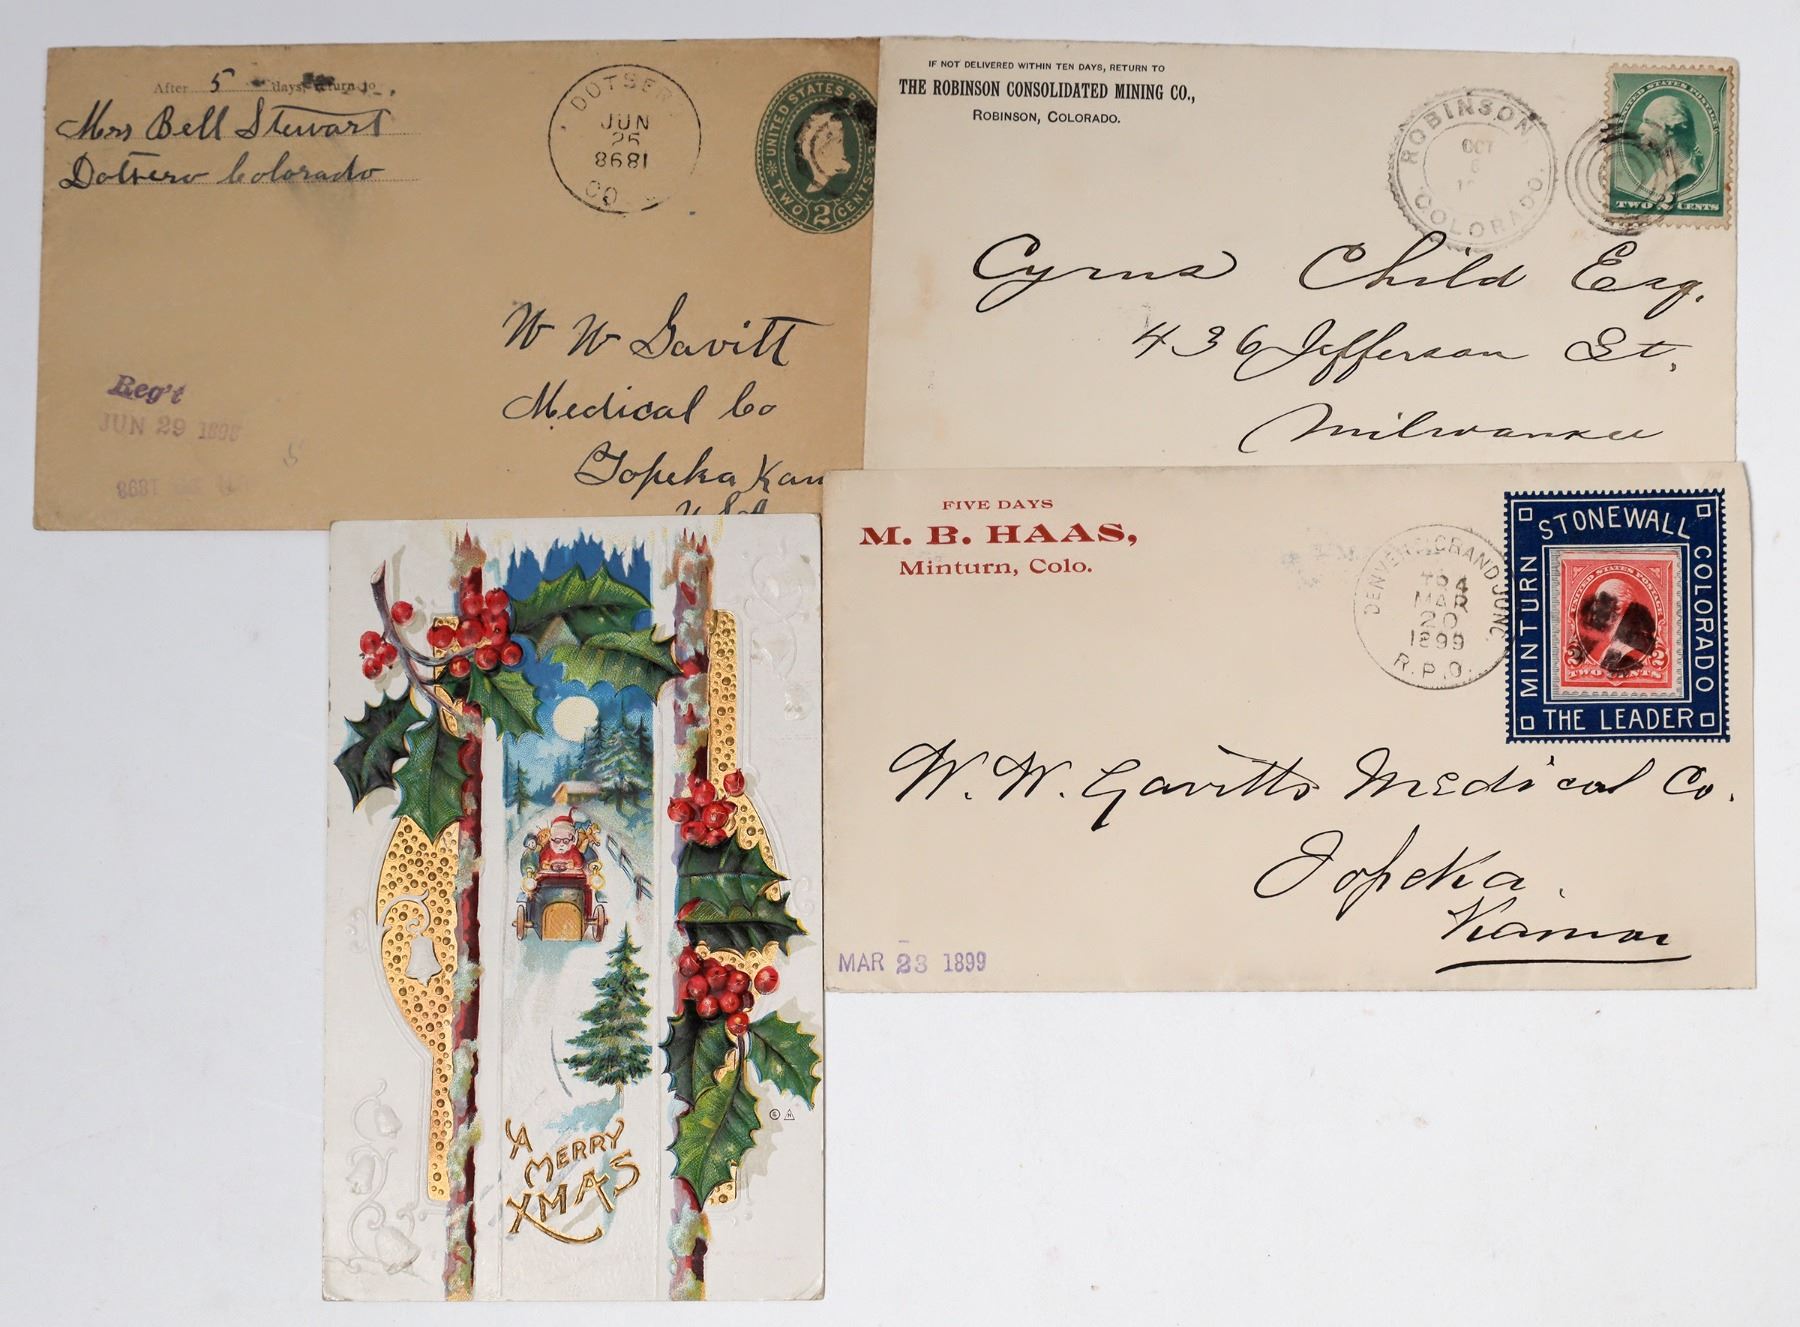 After 5 days, return to
Mrs Bell Stewart
Dotsero Colorado
DOTSERO
JUN
25
8681
CO
UNITED STATES
TWO 2 CENTS
W W Gavitt
Medical Co
Topeka Kan
Reg't
JUN 29 1898
1898
IF NOT DELIVERED WITHIN TEN DAYS, RETURN TO
THE ROBINSON CONSOLIDATED MINING CO.,
ROBINSON, COLORADO.
ROBINSON,
OCT
6
COLORADO.
TWO 2 CENTS
Cyrus Child Esq.
436 Jefferson St.
Milwaukee
FIVE DAYS
M. B. HAAS,
Minturn, Colo.
DENVER & GRAND JUNC.
MAR
20
1899
R.P.O.
STONEWALL
MINTURN
COLORADO
THE LEADER
UNITED STATES POSTAGE
2 2
TWO CENTS
W. W. Gavitts Medical Co.
Topeka.
Kansas
MAR 23 1899
A
MERRY
XMAS